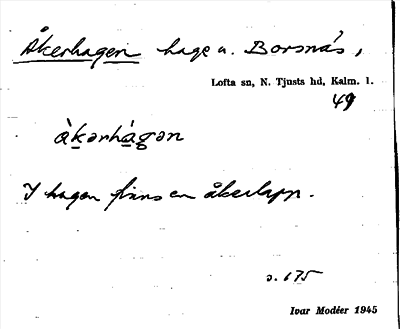 Åkerhagen hage u. Borsnäs,
Lofta sn, N. Tjusts hd, Kalm. l.
49
àkərhàgən
I hagen finns en åkerlapp.
s. 175
Ivar Modéer 1945